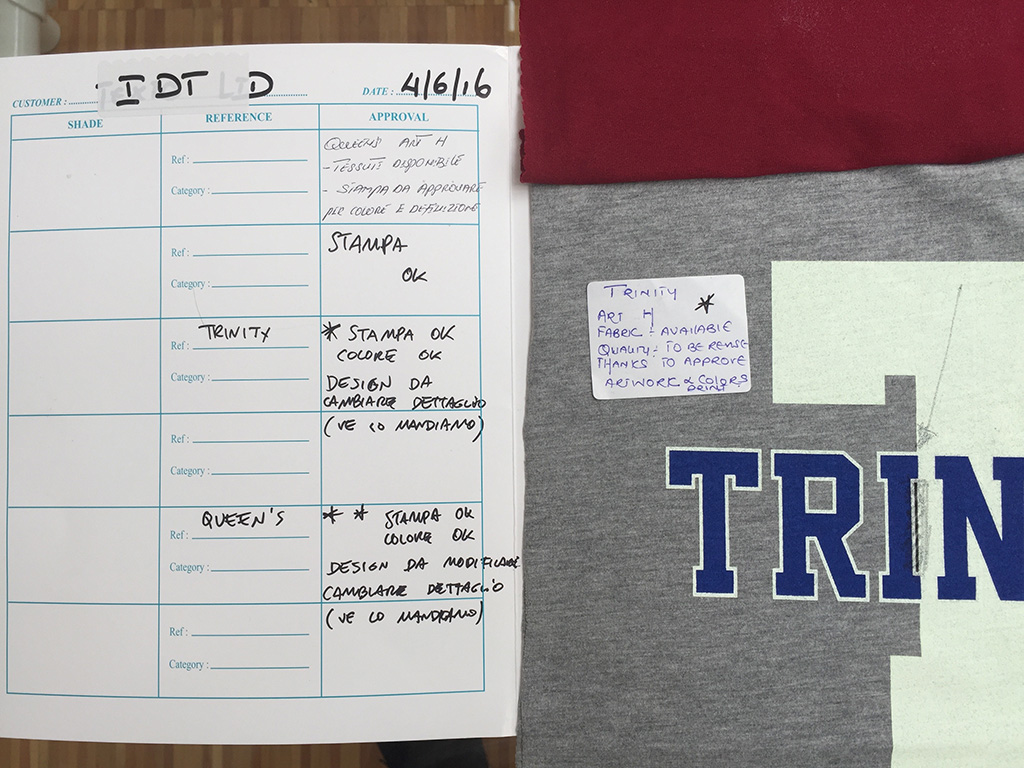 CUSTOMER : IDT LTD
DATE : 4/6/16
SHADE
REFERENCE
APPROVAL
Ref :
Category :
QUEENS' ART H
- TESSUTI DISPONIBILE
- STAMPA DA APPROVARE
PER COLORE E DEFINIZIONE
Ref :
Category :
STAMPA
OK
TRINITY
Ref :
Category :
* STAMPA OK
COLORE OK
DESIGN DA
CAMBIARE DETTAGLIO
(VE LO MANDIAMO)
Ref :
Category :
QUEEN'S
Ref :
Category :
* * STAMPA OK
COLORE OK
DESIGN DA MODIFICARE
CAMBIARE DETTAGLIO
(VE LO MANDIAMO)
Ref :
Category :
TRINITY
*
ART H
FABRIC : AVAILABLE
QUALITY : TO BE
THANKS TO APPROVE
ARTWORK & COLORS
PRINT
TRIN